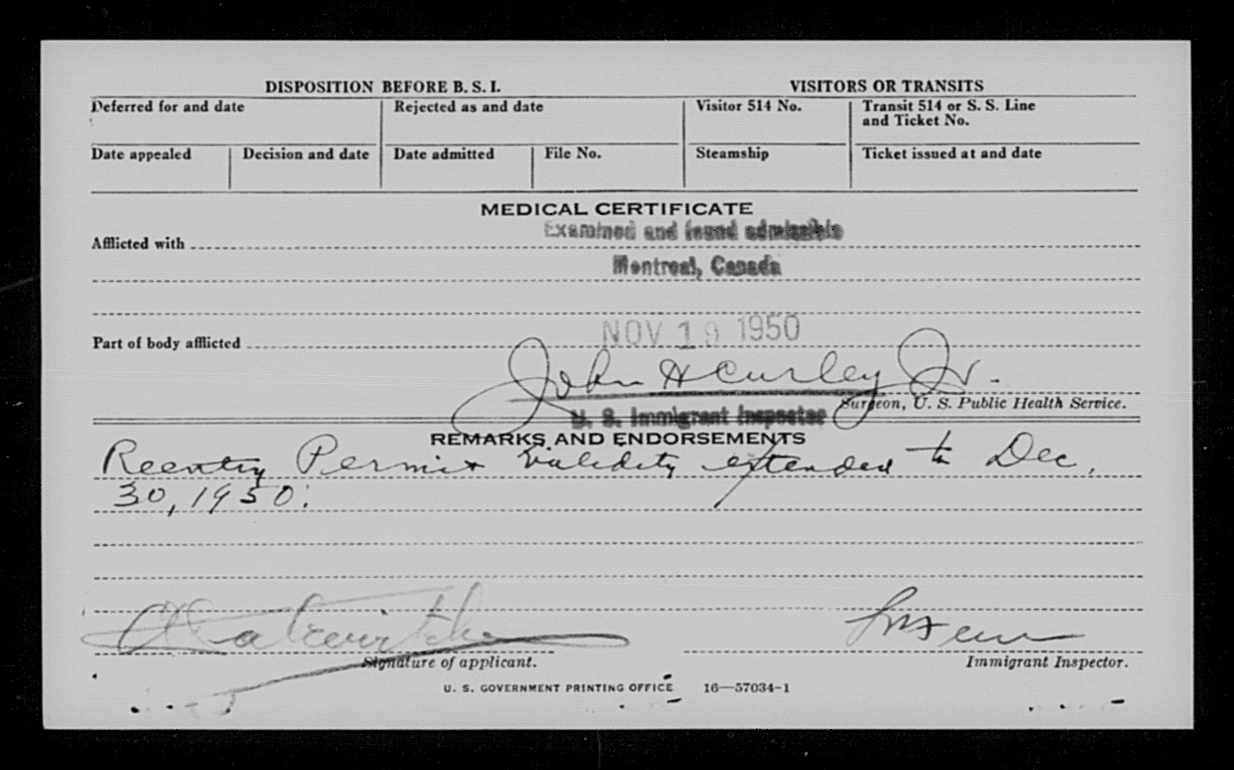 DISPOSITION BEFORE B. S. I. VISITORS OR TRANSITS
Deferred for and date Rejected as and date Visitor 514 No. Transit 514 or S. S. Line
and Ticket No.
Date appealed Decision and date Date admitted File No. Steamship Ticket issued at and date
MEDICAL CERTIFICATE
Examined and found admissible
Afflicted with
Montreal, Canada
NOV 19 1950
Part of body afflicted
John H Curley Jr.
Surgeon, U. S. Public Health Service.
U. S. Immigrant Inspector
REMARKS AND ENDORSEMENTS
Reentry Permit validity extended to Dec.
30, 1950.
Signature of applicant. Immigrant Inspector.
U. S. GOVERNMENT PRINTING OFFICE 16—57034-1